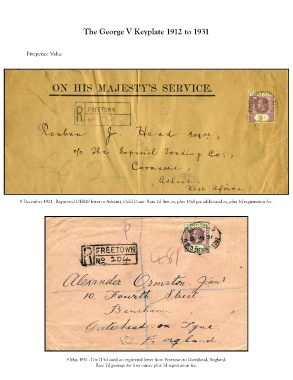 The George V Keyplate 1912 to 1931
Fivepence Value
ON HIS MAJESTY'S SERVICE.
R FREETOWN
No
Reuben J. Head Esqre.,
c/o The Imperial Trading Co.,
Coomassie,
Ashanti,
West Africa.
9 December 1921 - Registered OHMS letter to Ashanti, Gold Coast. Rate 2d first oz, plus 1½d per additional oz, plus 3d registration fee.
R FREETOWN
No 204
Alexander Ormston, Junr
10, Fourth Street
Bensham
Gateshead on Tyne
England
9 May 1931 - Die II 5d used on registered letter from Freetown to Gateshead, England.
Rate 2d postage for first ounce plus 3d registration fee.